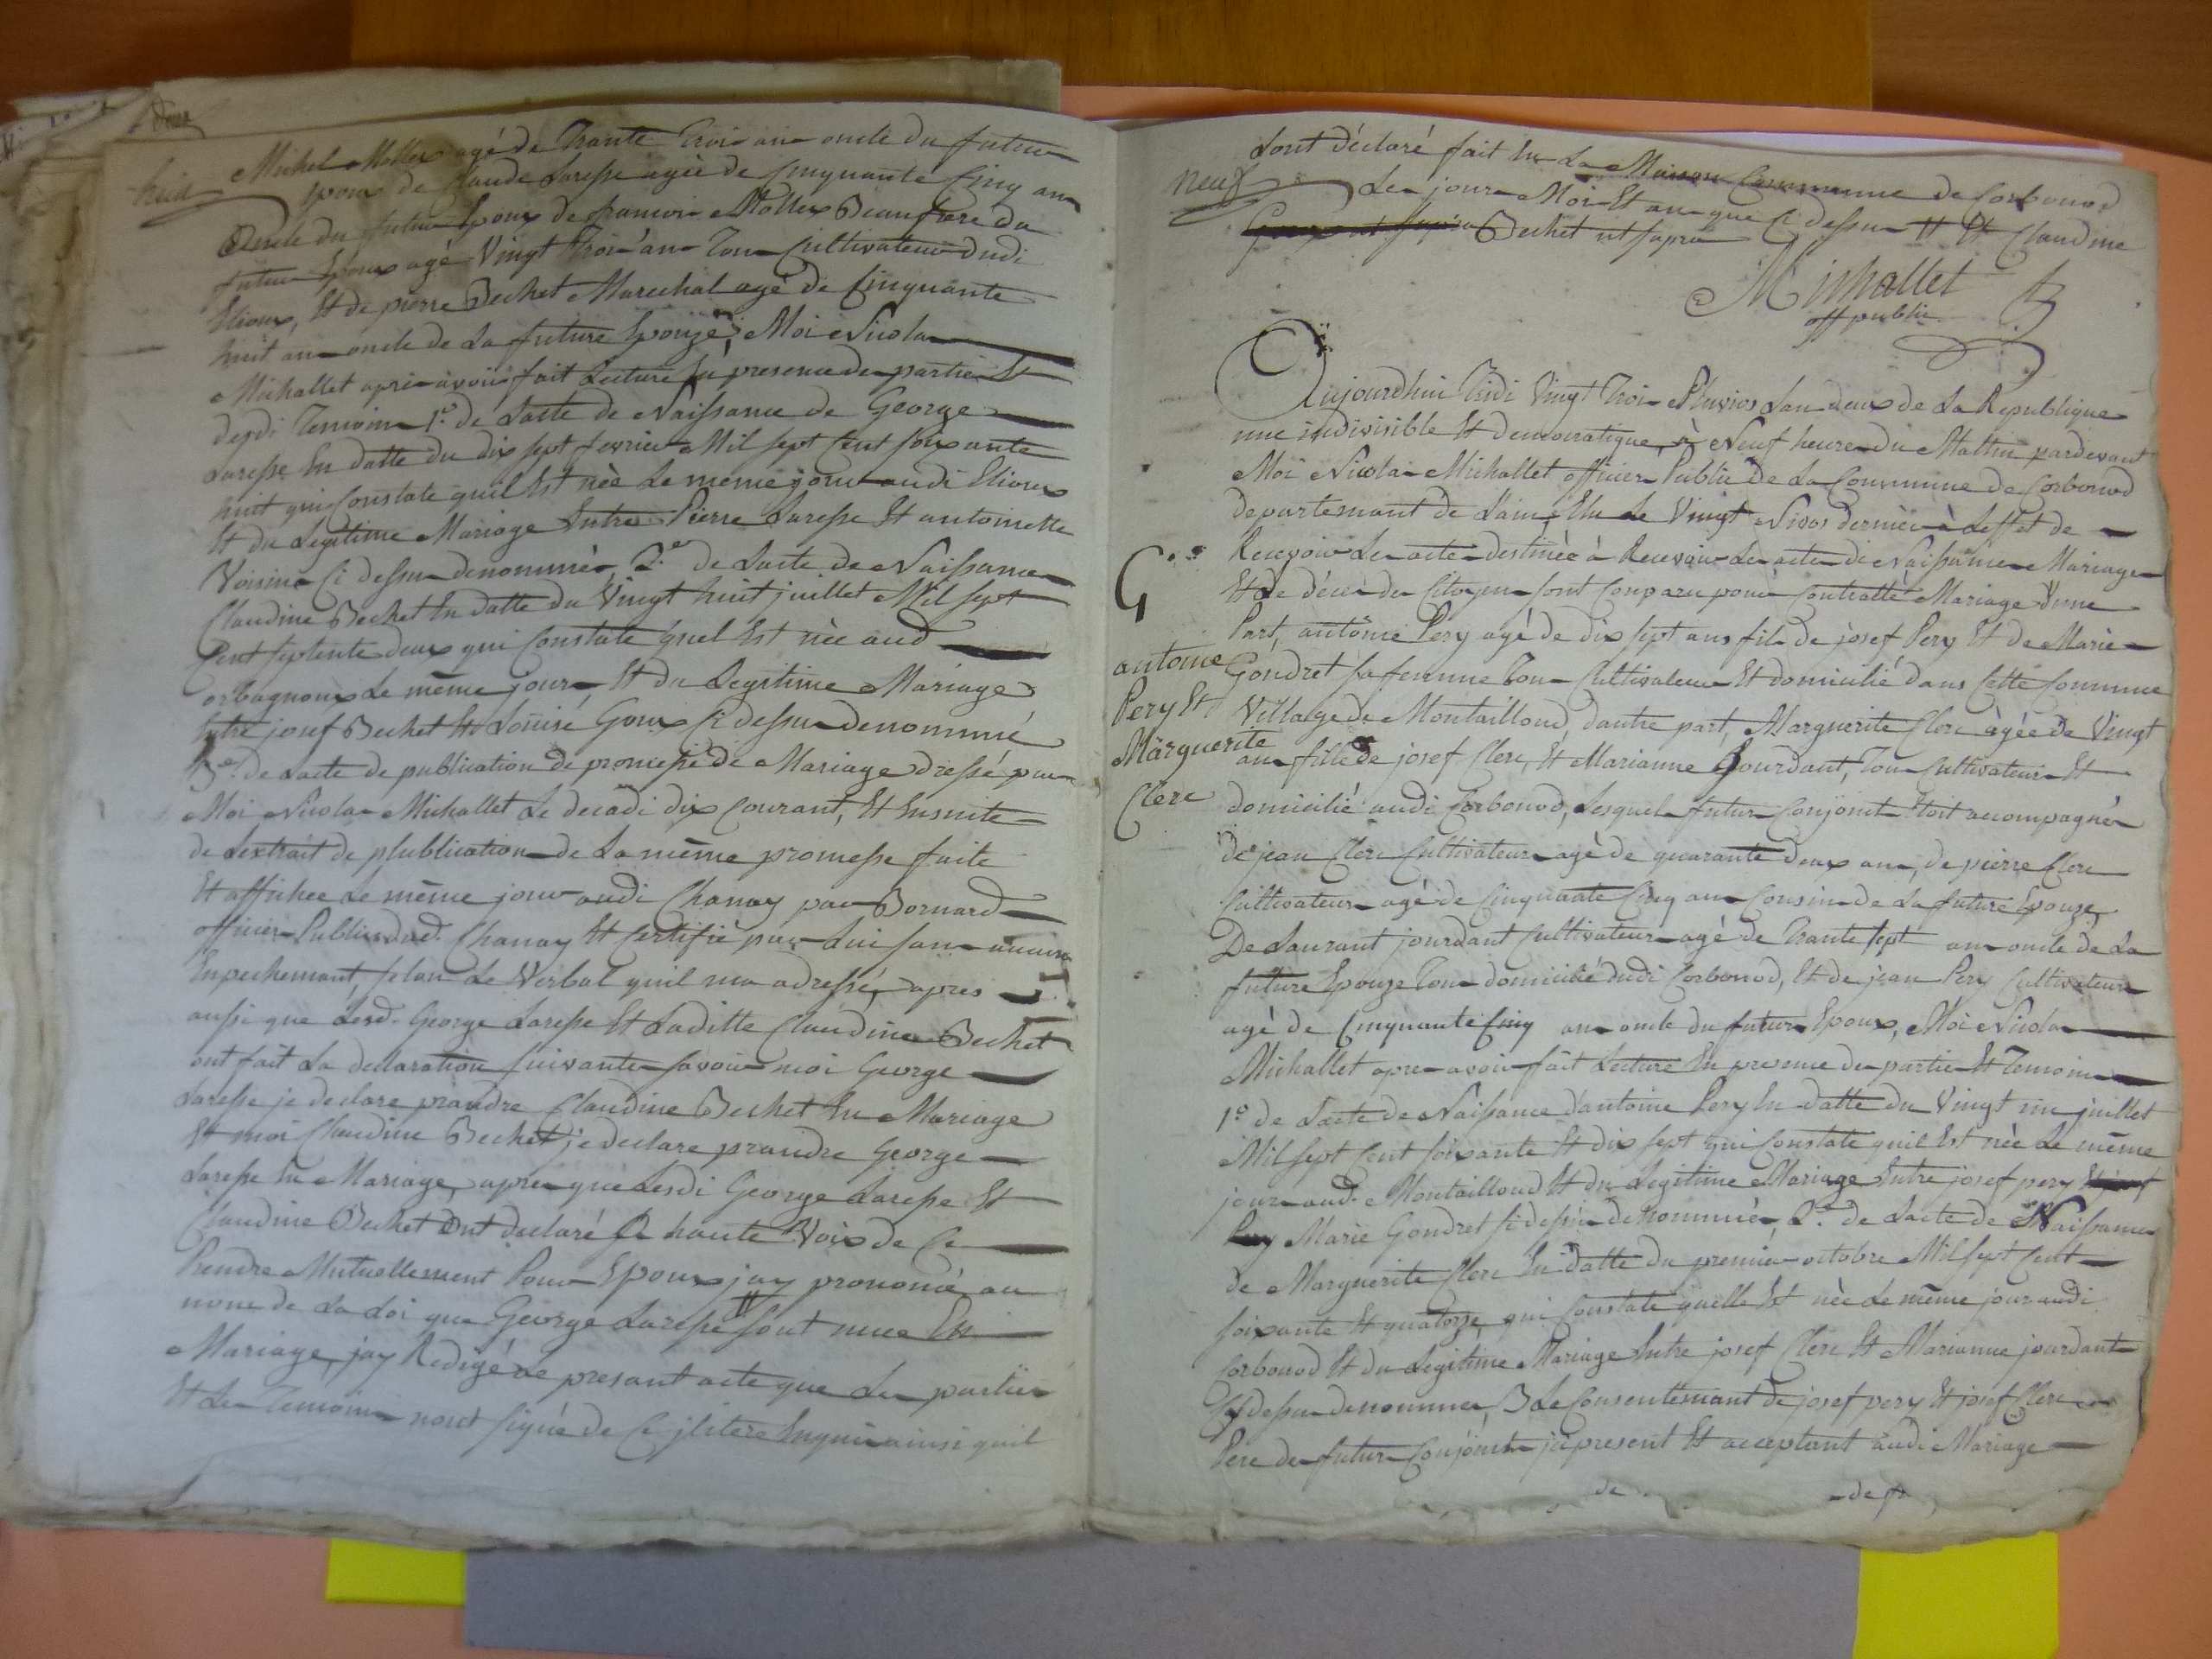 huit
Michel Mollex agé de Trante Trois ans oncle du futur
Epoux de Claude Laresse agée de Cinquante Cinq ans
Oncle du futur Epoux de francois Mollex Beaufrere du
futur Epoux agé Vingt Trois ans Tous Cultivateur dudi
Elioux, Et de pierre Bechet Marechal agé de Cinquante
huit ans oncle de La future Epouze, Moi Nicolas
Michallet après avoir fait Lecture En presence de partie Et
desdi Temoins 1.º de Lacte de Naissance de George
Laresse En datte du dix sept fevrier Mil sept Cent soixante
huit qui Constate quil Est née Le même jour audi Elioux
Et du Legitime Mariage Entre Pierre Laresse Et antoinette
Voisin Ci dessus denommés, 2.º de Lacte de Naissance
Claudine Bechet En datte du Vingt huit juillet Mil sept
Cent septente deux qui Constate quel Est née aud
orbagnoux Le même jour Et du Legitime Mariage
Entre josef Bechet Et Louise Goux Ci dessus denommé
3.º de Lacte de publication de promesse de Mariage dressé par
Moi Nicolas Michallet Le decadi dix Courant, Et Ensuite
de Lextrait de plublication de La même promesse faite
Et affichee Le même jour audi Chanay par Bornard
officier Public dud. Chanay Et Certifié par Lui sans aucun
Enpechemant, selan Le Verbal quil ma adressé, apres
aussi que Lesd. George Laresse Et Laditte Claudine Bechet
ont fait La declaration suivante savoir moi George
Laresse je declare prandre Claudine Bechet En Mariage
Et moi Claudine Bechet je declare prandre George
Laresse En Mariage, apres que Lesdi George Laresse Et
Claudine Bechet Ont declaré a haute Voix de Ce
Prendre Mutuellement Pour Epoux jay prononcé au
nom de La Loi que George Laresse # sont unee En
Mariage, jay Redigé Le presant acte que Les parties
Et Les Temoins nont signé de Ce jlitere Enquis ainsi quil
neuf
Lont déclaré fait En La Maison Commune de Corbonod
Les jour Mois Et an que Ci dessus # Et Claudine
Bechet ut supra
Michallet
off public
Aujourdhui Tridi Vingt Trois Pluvios Lan deux de La Republique
une indivisible Et democratique, à Neuf heure du Mattin pardevant
Moi Nicolas Michallet officier Public de La Commune de Corbonod
departemant de Lain, Elu Le Vingt Nivos dernier à Leffet de
Recevoir Les acte destinée à Recevoir Les acte de Naissance Mariage
Et de décès des Citoyens sont Conparu pour Contratté Mariage dune
Part, antoine Pery agé de dix sept ans fils de josef Pery Et de Marie
Gondret sa femme Tous Cultivateur Et domicilié dans Cette Commune
Village de Montailloud, dautre part, Marguerite Clerc agée de Vingt
an fille de josef Clerc, Et Marianne Jourdant, Tous Cultivateur Et
domicilié audi Corbonod, Lesquel futur Conjoint Etoit accompagné
de jean Clerc Cultivateur agé de quarante deux ans, de pierre Clerc
Cultivateur agé de Cinquante Cinq ans Cousin de La future Epouze,
De Laurant jourdant Cultivateur agé de Trante sept ans oncle de La
future Epouze Tous domicilié dudi Corbonod, Et de jean Pery Cultivateur
agé de Cinquante Cinq ans oncle du futur Epoux, Moi Nicolas
Michallet apres avoir fait Lecture En presence des partie Et Temoins
1.º de Lacte de Naissance dantoine Pery En datte du Vingt un juillet
Mil sept Cent soixante Et dix sept qui Constate quil Est née Le même
jour aud. Montailloud Et du Legitime Mariage Entre josef pery
Marie Gondret Ci dessus denommés, 2.º de Lacte de Naissance
de Marguerite Clerc En datte du premier octobre Mil sept Cent
soixante Et quatorze, qui Constate quelle Est née Le même jour audi
Corbonod Et du Legitime Mariage Entre josef Clerc Et Marianne jourdant
Cy dessus denommes, 3 Le Consentemant de josef pery Et josef Clerc
Pere des futurs Conjoints ji present Et acceptant audi Mariage
G
antoine
Pery Et
Marguerite
Clerc